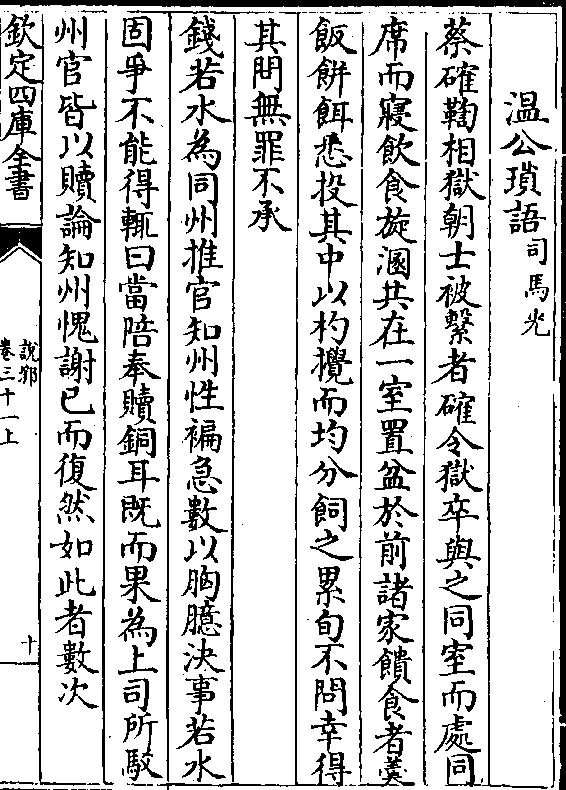 温公瑣語司馬光
蔡確鞫相獄朝士被繫者確令獄卒與之同室而處同
席而寢飲食旋溷共在一室置盆於前諸家饋食者羹
飯餅餌悉投其中以杓攪而均分飼之累旬不問幸得
其問無罪不承
錢若水為同州推官知州性褊急數以胸臆決事若水
固爭不能得輒曰當陪奉贖銅耳既而果為上司所駮
州官皆以贖論知州愧謝已而復然如此者數次
欽定四庫全書
說郛
卷三十一上
十